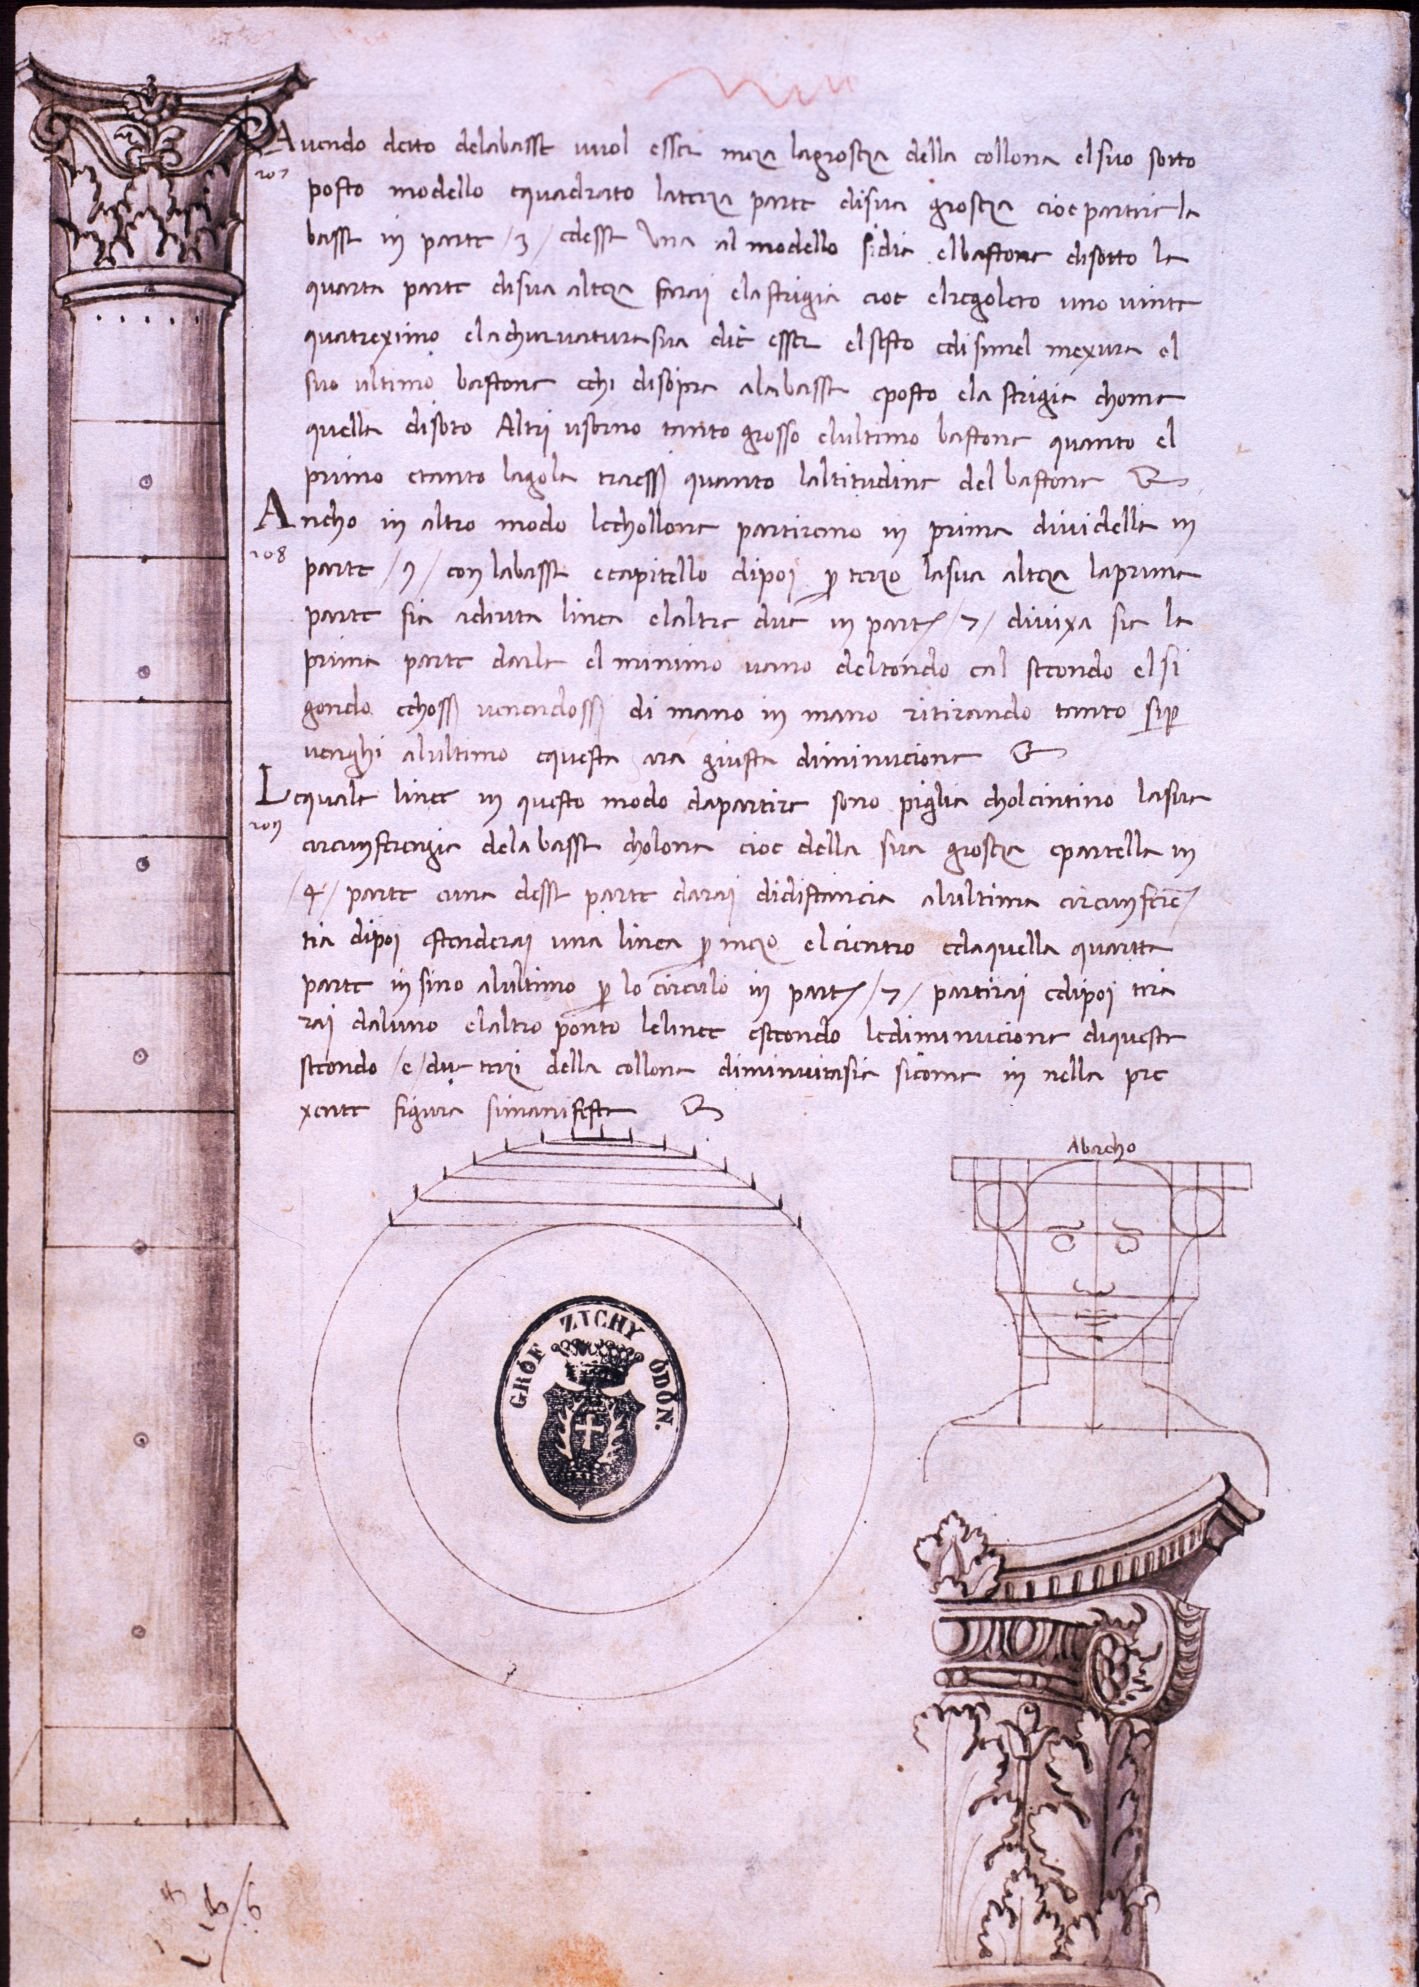 Avendo decto delabasse vuol esser meza lagroseza della collona elsuo sotto
107
posto modello equadrato laterza parte disua groseza cioe partire la
basse in parte /3/ edesse una al modello sidia elbastone disotto la
quarta parte disua alteza farai elastrigia cioe elregoleto uno vinte
quatreximo elachurvatura sua die esser elsesto edisimel mexura el
suo ultimo bastone chi disopra alabasse eposto ela strigia chome
quella disoto Altri usorno tanto grosso elultimo bastone quanto el
primo etanto lagola traessi quanto laltitudine del bastone
Ancho in altro modo lechollone partiremo in prima dividella in
108
parte /9/ con labasse ecapitello dipoi p terzo lasua alteza laprima
parte sia adiuta linea elaltre due in parti /7/ divixa sia la
prima parte darla el minimo vano deltondo eal secondo elsi
gondo echossi venendossi di mano in mano ritirando tanto sup
venghi alultimo equesta ara giusta diminucione
Lequale linee in questo modo dapartire sono piglia cholcintino lasua
109
circunferengia dela basse cholona cioe della sua groseza epartella in
/4/ parte euna desse parte darai didistancia alultima circunferē/
tia dipoi estenderai una linea p mezo elcientro edaquella quarta
parte in sino alultimo p lo circulo in parti /7/ partirai edipoi tira
rai daluno elaltro ponto lelinee esecondo lediminucione diqueste
secondo /e/ due terzi della collona diminuitasia sicome in nella pre
xente figura simanifesta
Abacho
GRÓF ZICHY ÖDÖN.